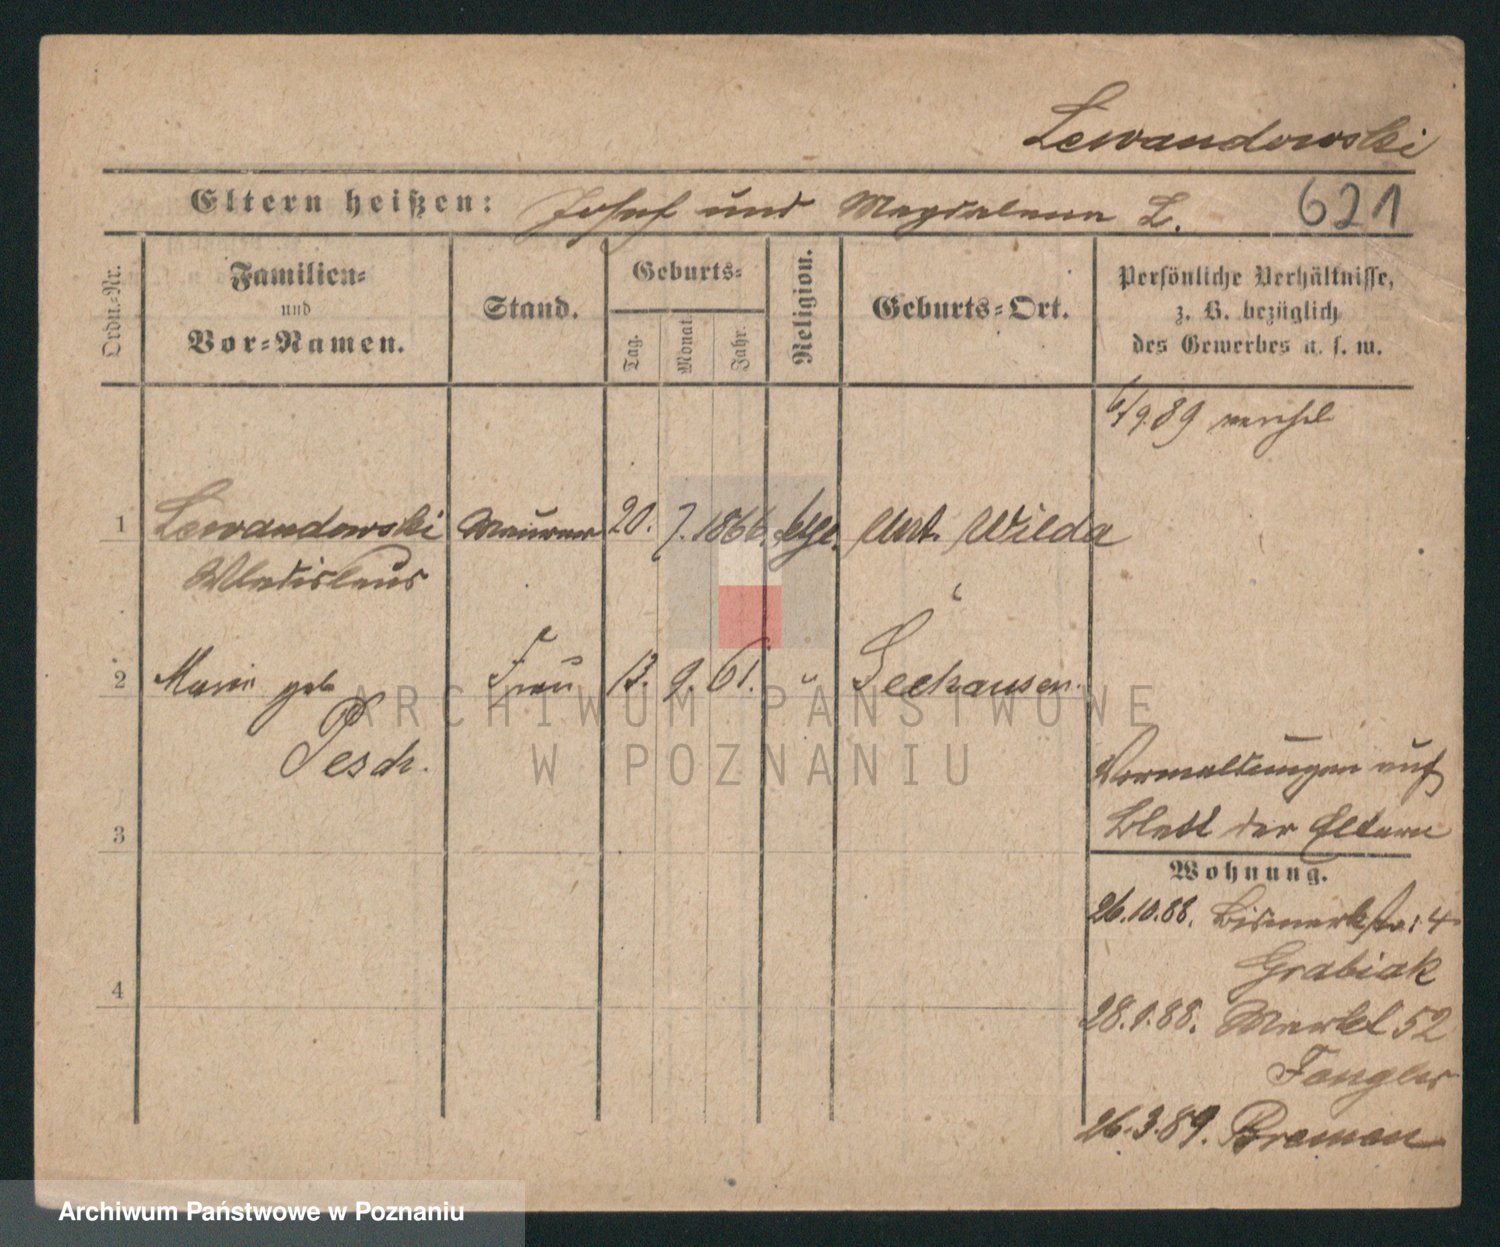 Lewandowski
Eltern heißen: Josef und Magdalena L. 621
Ordn.-Nr. Familien- und Vor-Namen. Stand. Geburts- Tag. Monat. Jahr. Religion. Geburts-Ort. Persönliche Verhältnisse, z. B. bezüglich des Gewerbes u. s. w.
6/9.89
1 Lewandowski Maurer 20. 7. 1866. kth. Unt. Wilda
Wladislaus
2 Marie geb. Frau 13. 9. 61. " Seehausen.
Pesch.
ARCHIWUM PAŃSTWOWE
W POZNANIU
auf
3 Blatt der Eltern
Wohnung.
26.10.88. Bismarkstr: 4
Grabiak
4
28.1.88. Markt 52
26.3.89. Bremen
Archiwum Państwowe w Poznaniu